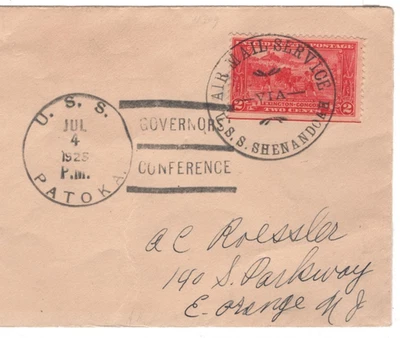 AIR MAIL SERVICE
VIA
U.S.S. SHENANDOAH
POSTAGE
2 2
LEXINGTON-CONCORD
TWO CENTS
U. S. S.
JUL
4
1925
P.M.
PATOKA
GOVERNORS
CONFERENCE
A C Roessler
140 S. Parkway
E. Orange N J